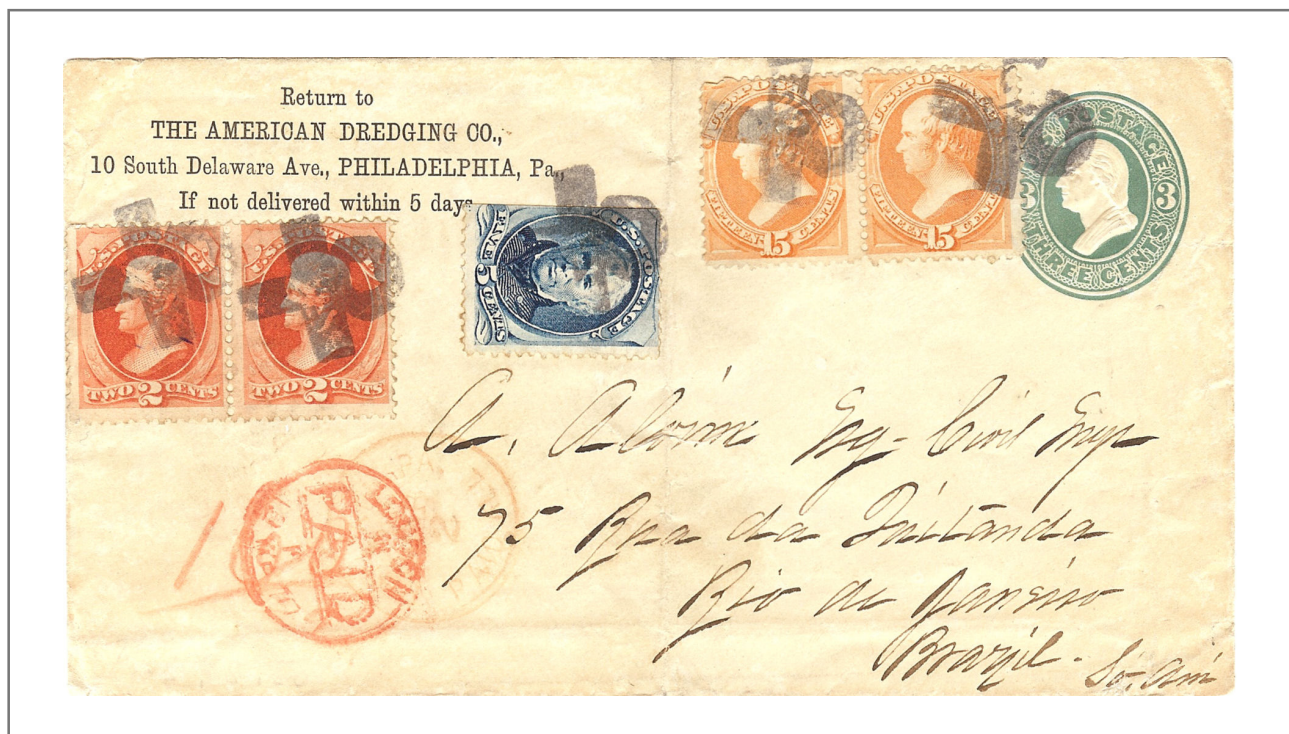 Return to
THE AMERICAN DREDGING CO.,
10 South Delaware Ave., PHILADELPHIA, Pa.,
If not delivered within 5 days
U.S. POSTAGE
FIFTEEN 15 CENTS
U.S. POSTAGE
FIFTEEN 15 CENTS
POSTAGE
3 3
THREE CENTS
U.S. POSTAGE
TWO 2 CENTS
U.S. POSTAGE
TWO 2 CENTS
U.S. POSTAGE
FIVE 5 CENTS
LONDON
PAID
A. Alvim Esq- Civil
75 Rua da Quitanda
Rio de Janeiro
Brazil - So. Am